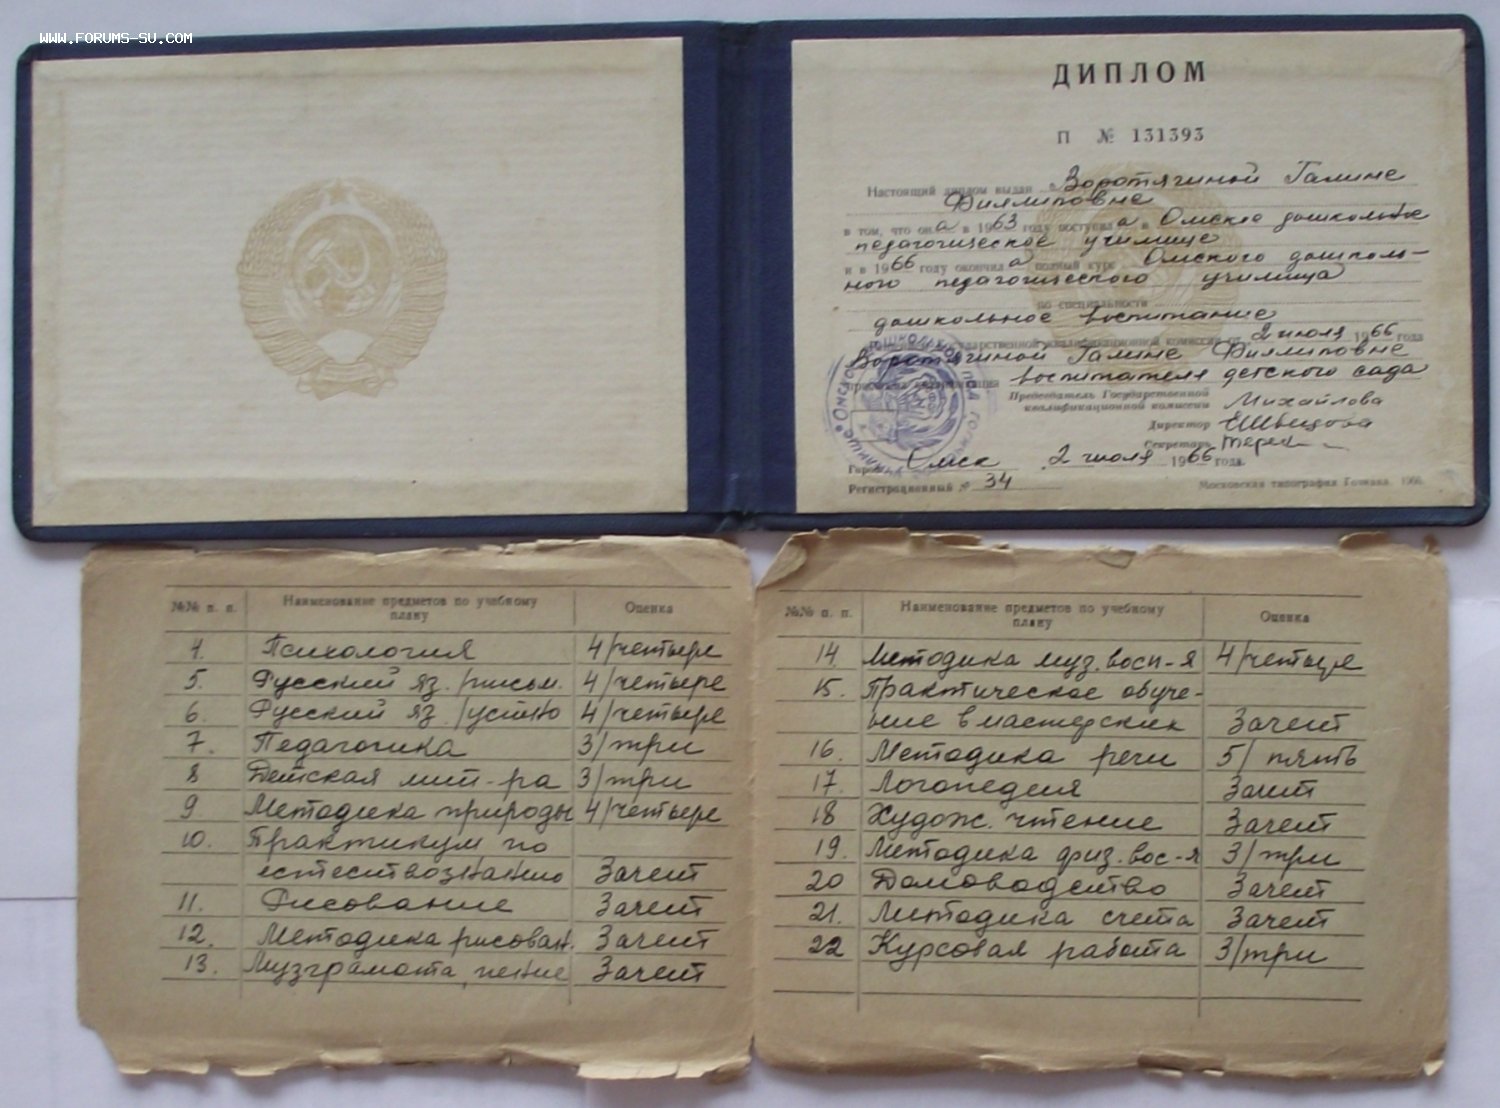 WWW.FORUMS-SU.COM
ДИПЛОМ
П № 131393
Настоящий диплом выдан Воротягиной Галине
Филлиповне
в том, что она в 1963 году поступила в Омское дошкольное
педагогическое училище
и в 1966 году окончила полный курс Омского дошколь-
ного педагогического училища
по специальности
дошкольное воспитание
Государственной квалификационной комиссии от 2 июля 1966 года
Воротягиной Галине Филлиповне
квалификация воспитателя детского сада
Председатель Государственной
квалификационной комиссии Михайлова
Директор ЕШвецова
Секретарь
Город Омск 2 июля 1966 года.
Регистрационный № 34
Московская типография Гознака. 1966.
№№ п. п. Наименование предметов по учебному плану Оценка
4. Психология 4/четыре
5. Русский яз. /письм. 4/четыре
6. Русский яз. /устно 4/четыре
7. Педагогика 3/три
8 Детская лит-ра 3/три
9. Методика природы 4/четыре
10. Практикум по
естествознанию Зачет
11. Рисование Зачет
12. Методика рисован. Зачет
13. Музграмота, пение Зачет
№№ п. п. Наименование предметов по учебному плану Оценка
14. Методика муз. восп-я 4/четыре
15. Практическое обуче-
ние в мастерских Зачет
16. Методика речи 5/ пять
17. Логопедия Зачет
18 Худож. чтение Зачет
19. Методика физ. вос-я 3/три
20 Домоводство Зачет
21. Методика счета Зачет
22 Курсовая работа 3/три